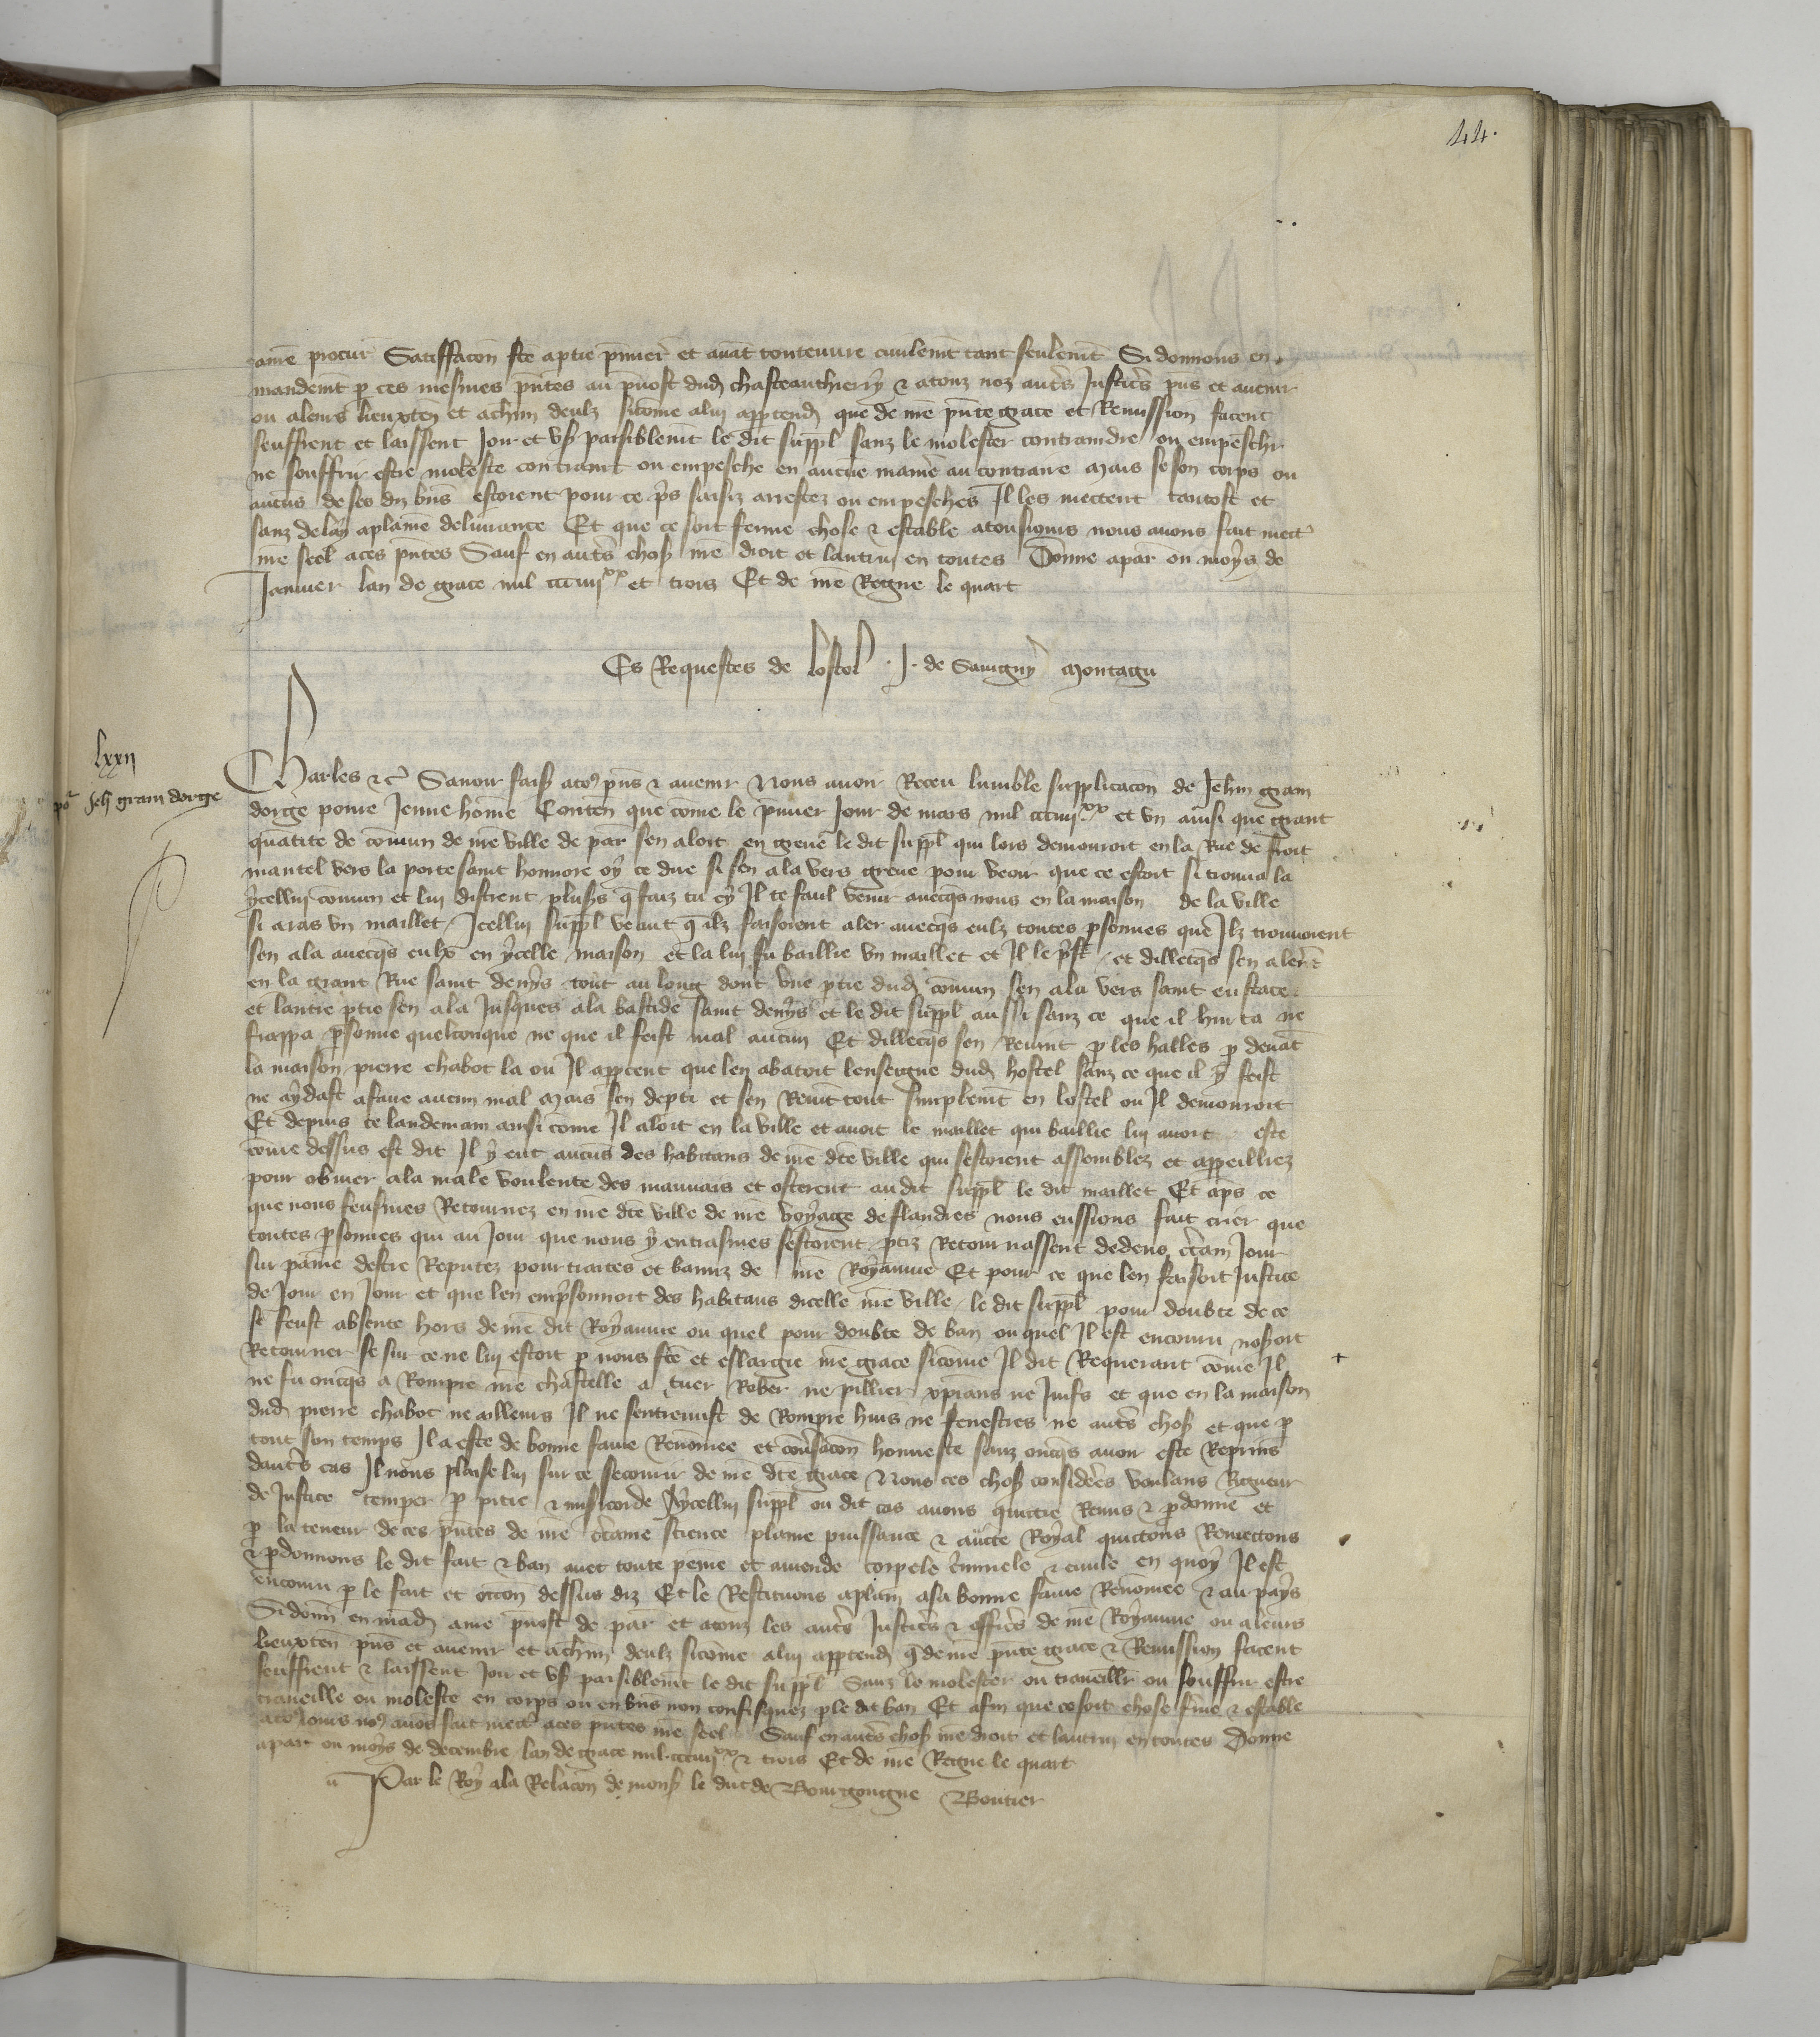 44.
ame procur Satiffacon fce a ptie p̃mier et auãt toute euure ciuilemt tant seulemt Si donnons en
mandemt p ces mesmes pñtes au p̃uost dud chasteauthierry & a touz noz autrs Justicrs pñs et auenir
ou a leurs lieuxten et a chũn deulz sicõme a lui apptend que de nr̃e pñte grace et Remission facent
seuffrent et laissent Joir et vser paisiblemt le dit suppl sanz le molester contraindre ou empeschr
ne souffrir estre moleste contraint ou empesche en aucue maniere au contraire Mais se son corps ou
aucus de ses diz bñs estoient pour ce p̃s saisiz arrestez ou empeschés Il les mettent tantost et
sanz delay a plaine deliurance Et que ce soit ferme chose & estable a tousiours nous auons fait mectr
nr̃e seel a ces pñtes Sauf en autrs choses nr̃e droit et lautruy en toutes Donne a par ou moys de
Januier lan de grace mil ccciiijxx et trois Et de nr̃e Regne le quart
Es Requestes de lostel . J . de Sauigny Montagu
lxxij
por Jeh grain dorge
Charles &c Sauoir faisõs a to9 pñs & auenir Nous auoir Receu lumble supplicacon de Jehan grain
dorge poure Jeune hõme Conten que cõme le p̃mier Jour de mars mil ccciiijxx et vn ainsi que grant
quãtite de cõmun de nr̃e ville de par sen aloit en greue le dit suppl qui lors demouroit en la Rue de froit
mantel vers la porte saint honnore oy ce dire si sen ala vers greue pour veoir que ce estoit si trouua la
ycellui cõmun et lui distrent plusrs q̃ faiz tu cy Il te fault venir auecqs nous en la maison de la ville
si aras vn maillet Icellui suppl veant q̃ ilz faisoient aler auecqs eulz toutes psonnes que Ilz trouuoient
sen ala auecqs eulx en ycelle maison et la lui fu baillie vn maillet et Il le p̃st et dillecqs sen alerẽt
en la grant Rue saint denys tout au long dont vne ptie dud cõmun sen ala vers saint eustace
et lautre ptie sen ala Jusques a la bastide saint denys et le dit suppl aussi sanz ce que il hurta ne
frappa psonne quelconque ne que il feist mal aucun Et dillecqs sen Reuint p les halles p deuãt
la maison pierre chabot la ou Il appceut que len abatoit lenseigne dud hostel sanz ce que il y feist
ne aydast a faire aucun mal Mais sen depti et sen Reuit tout simplemt en lostel ou Il demouroit
Et depuis ce landemain ainsi cõme Il aloit en la ville et auoit le maillet qui baillie lui auoit este
cõme dessus est dit Il y eut aucus des habitans de nr̃e dte ville qui sestoient assemblez et appeilliez
pour obuier a la male voulente des mauuais et osterent au dit suppl le dit maillet Et aps ce
que nous feusmes Retournez en nr̃e dte ville de nr̃e voyage de flandres nous eussions fait crier que
toutes psonnes qui au Jour que nous y entrasmes sestoient ptiz Retournassent dedens ctain Jour
sur paine destre Reputez pour traitres et banniz de nr̃e Royaume Et pour ce que len faisoit Justice
de Jour en Jour et que len emp̃sonnoit des habitans dicelle nr̃e ville le dit suppl pour doubte de ce
se feust absente hors de nr̃e dit Royaume ou quel pour doubte de ban ou quel Il est encouru nosoit
Retourner se sur ce ne lui estoit p nous fce et eslargie nr̃e grace sicõme Il dit Requerant cõme Il
ne fu oncqs a Rompre nr̃e chastellet a tuer Rober ne pillier xpians ne Juifs et que en la maison
dud pierre chabot ne ailleurs Il ne sentremist de Rompre huis ne fenestres ne autrs choses et que p
tout son temps Il a este de bonne fame Renõmee et conũsacon honneste sanz oncqs auoir este Reprins
dautrs cas Il nous plaise lui sur ce secourir de nr̃e dte grace Nous ces choses considerees voulans Rigueur
de Justice temper p pitie & misicorde A ycellui suppl ou dit cas auons quittie Remis & pdonne et
p la teneur de ces pñtes de nr̃e ctaine science plaine puissance & aucte Royal quittons Remettons
& pdonnons le dit fait & ban auec toute peine et amende corpele c̃iminele & ciuile en quoy Il est
encouru p le fait et occon dessus diz Et le Restituons a plain a sa bonne fame Renõmee & au pays
Si donñ en mãd au p̃uost de par et a touz les autrs Justicrs & officrs de nr̃e Royaume ou a leurs
lieuxten pñs et auenir et a chũn deulz sicõme a lui apptend q̃ de nr̃e pñte grace & Remission facent
seuffrent & laissent Joir et vser paisiblemt le dit suppl Sanz le molester ou traueillr ou souffrir estre
traueille ou moleste en corps ou en bñs non confisquez p le dit ban Et afin que ce soit chose fme & estable
a to9iours no9 auos fait mectr a ces pñtes nr̃e seel Sauf en autrs choses nr̃e droit et lautrui en toutes Donne
a par ou moys de decembre lan de grace mil ccciiijxx & trois Et de nr̃e Regne le quart
Par le Roy a la Relacon de mons le duc de Bourgongne Boutier